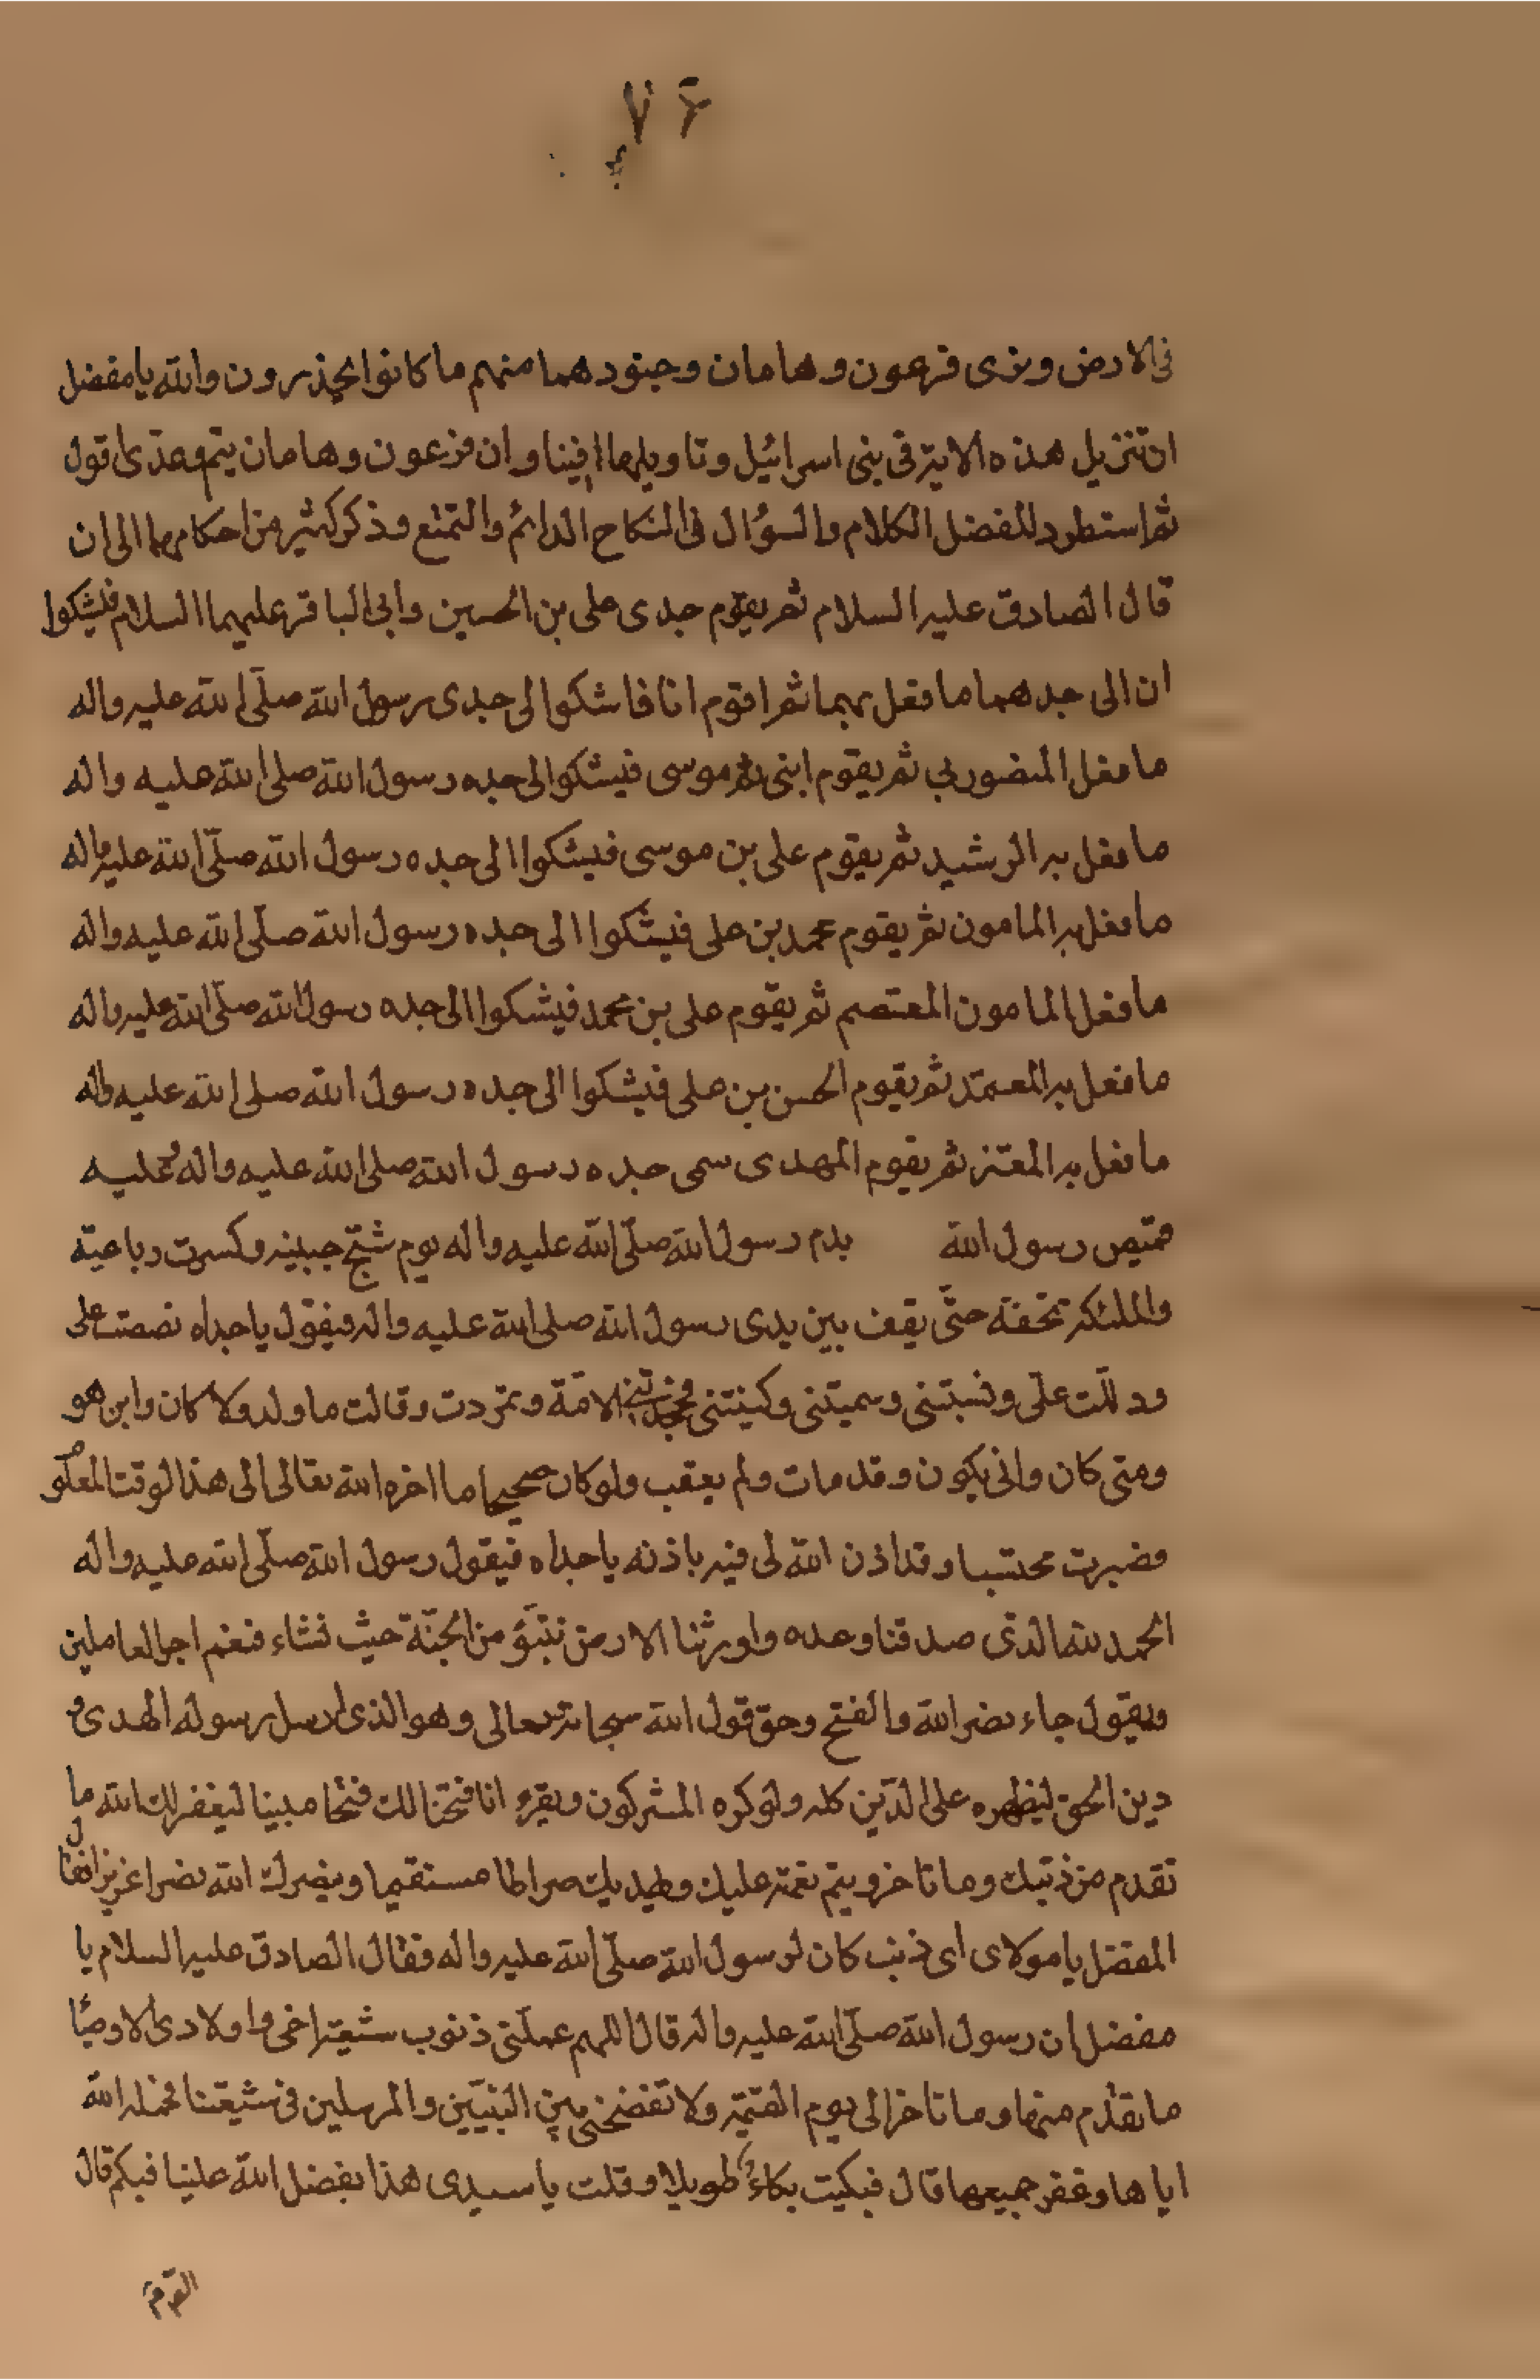 ٧٤
فى الارض ونرى فرعون وهامان وجنودهما منهم ما كانوا يحذرون والله يا مفضل
ان تنزيل هذه الاية فى بنى اسرائيل وتاويلها فينا وان فرعون وهامان تيم وعدى اقول
ثم استطرد للفضل الكلام والسؤال فى النكاح الدائم والتمتع وذكر كثير من احكامهما الى ان
قال الصادق عليه السلام ثم يقوم جدى على بن الحسين وابى الباقر عليهما السلام فيشكوا
ان الى جدهما ما فعل بهما ثم اقوم انا فاشكوا لى جدى رسول الله صلّى الله عليه واله
ما فعل المنصور بى ثم يقوم ابنى موسى فيشكوا لى جده رسول الله صلى الله عليه واله
ما فعل به الرشيد ثم يقوم على بن موسى فيشكوا الى جده رسول الله صلّى الله عليه واله
ما فعل به المامون ثم يقوم محمد بن على فيشكوا الى جده رسول الله صلّى الله عليه واله
ما فعل المامون المعتصم ثم يقوم على بن محمد فيشكوا الى جده رسول الله صلّى الله عليه واله
ما فعل به المعتمد ثم يقوم الحسن بن على فيشكوا الى جده رسول الله صلى الله عليه واله
ما فعل به المعتز ثم يقوم المهدى سمى جده رسول الله صلى الله عليه واله وعليه
قميص رسول الله بدم رسول الله صلّى الله عليه واله يوم شجّ جبينه وكسرت رباعيته
والملئكة تحفه حتّى يقف بين يدى رسول الله صلى الله عليه واله فيقول يا جداه نصصت على
ودللت علّى ونسبتنى وسميتنى وكنيتنى الامّة وتمردت وقالت ما ولد ولا كان واين هو
ومتى كان وانى يكون وقد مات ولم يعقب ولو كان صحيحا ما اخره الله تعالى الى هذا لوقت المعلوم
فصبرت محتسبا وقد اذن الله لى فيه باذنه يا جداه فيقول رسول الله صلّى الله عليه واله
الحمد لله الذى صدقنا وعده واورثنا الارض نتبوّء من الجنّة حيث نشاء فنعم اجر العاملين
ويقول جاء نصر الله والفتح وحق قول الله سبحانه تعالى وهو الذى ارسل رسوله الهدى و
دين الحق ليظهره على الدّين كله ولو كره المشركون ويقرء انا فتحنا لك فتحا مبينا ليغفر لك الله ما
تقدم من ذنبك وما تاخر ويتم نعمته عليك ويهديك صراطا مستقيما وينصرك الله نصرا عزيزا فقال
المفضل يا مولاى اى ذنب كان لرسول الله صلّى الله عليه واله فقال الصادق عليه السلام يا
مفضل ان رسول الله صلّى الله عليه واله قال اللهم حملّنى ذنوب شيعة اخى واولادى الاوصيا
ما تقدم منها وما تاخر الى يوم القيمة ولا تفضحنى بين النبيّين والمرسلين فى شيعتنا فحمله الله
اياها وغفر جميعها قال فبكيت بكاء طويلا وقلت يا سيدى هذا بفضل الله علينا فيكم قال